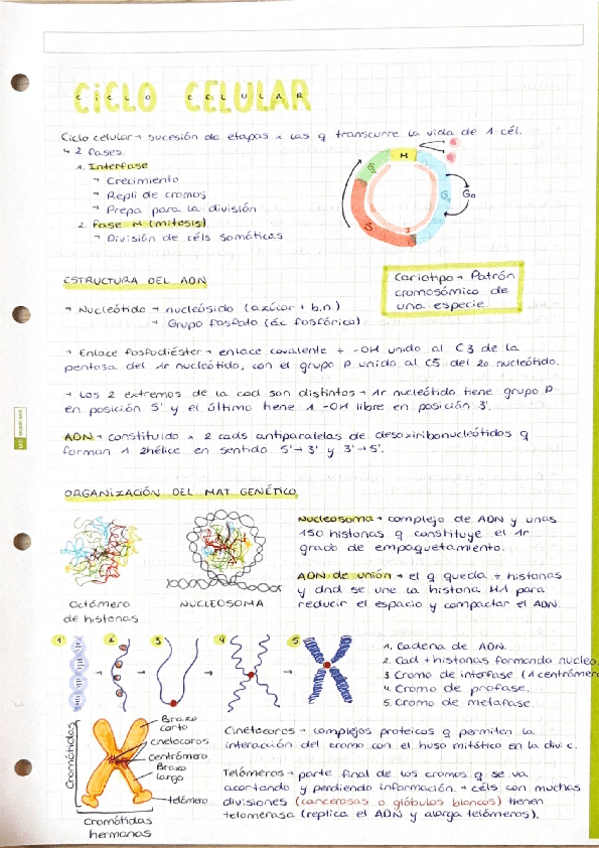 CICLO CELULAR
Ciclo celular → sucesión de etapas x las q transcurre la vida de 1 cél.
↳ 2 fases.
1. Interfase
→ Crecimiento
→ Repli de cromos
→ Prepa para la división
2. Fase M (mitosis)
→ División de céls somáticas
M
G₁
G₀
S
G₂
ESTRUCTURA DEL ADN
Cariotipo → Patrón
cromosómico de
una especie
→ Nucleótido → nucleósido (azúcar + b.n.)
→ Grupo fosfato (ác fosfórico)
→ Enlace fosfodiéster → enlace covalente + -OH unido al C3 de la
pentosa del 1r nucleótido, con el grupo P unido al C5 del 2o nucleótido.
→ Los 2 extremos de la cad son distintos → 1r nucleótido tiene grupo P
en posición 5' y el último tiene 1 -OH libre en posición 3'.
ADN → constituido x 2 cads antiparalelas de desoxiribonucleótidos q
forman 1 2hélice en sentido 5'→3' y 3'→5'.
ORGANIZACIÓN DEL MAT GENÉTICO
Nucleosoma → complejo de ADN y unas
150 histonas q constituye el 1r
grado de empaquetamiento.
ADN de unión → el q queda ÷ histonas
y dnd se une la histona H1 para
reducir el espacio y compactar el ADN.
Octámero
de histonas
NUCLEOSOMA
1 2 3 4 5
1. Cadena de ADN.
2. Cad + histonas formando nucleo
3 Cromo de interfase (1 centrómer
4. Cromo de profase.
5. Cromo de metafase.
Cromátidas
Brazo
corto
cinetocoros
centrómero
Brazo
largo
telómero
Cromátidas
hermanas
Cinetocoros → complejos proteicos q permiten la
interacción del cromo con el huso mitótico en la divi c.
Telómeros → parte final de los cromos q se va
acortando y perdiendo información. → céls con muchas
divisiones (cancerosas o glóbulos blancos) tienen
telomerasa (replica el ADN y alarga telómeros).